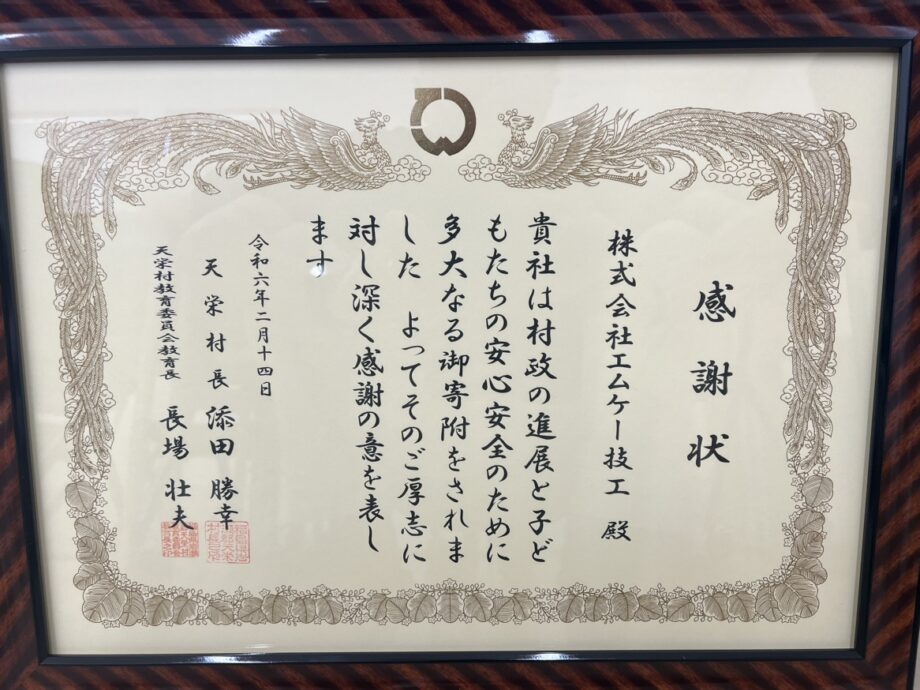 感謝状
株式会社エムケー技工 殿
貴社は村政の進展と子ど
もたちの安心安全のために
多大なる御寄附をされま
した よってそのご厚志に
対し深く感謝の意を表し
ます
令和六年二月十四日
天栄村長 添田勝幸
天栄村教育委員会教育長 長場壮夫